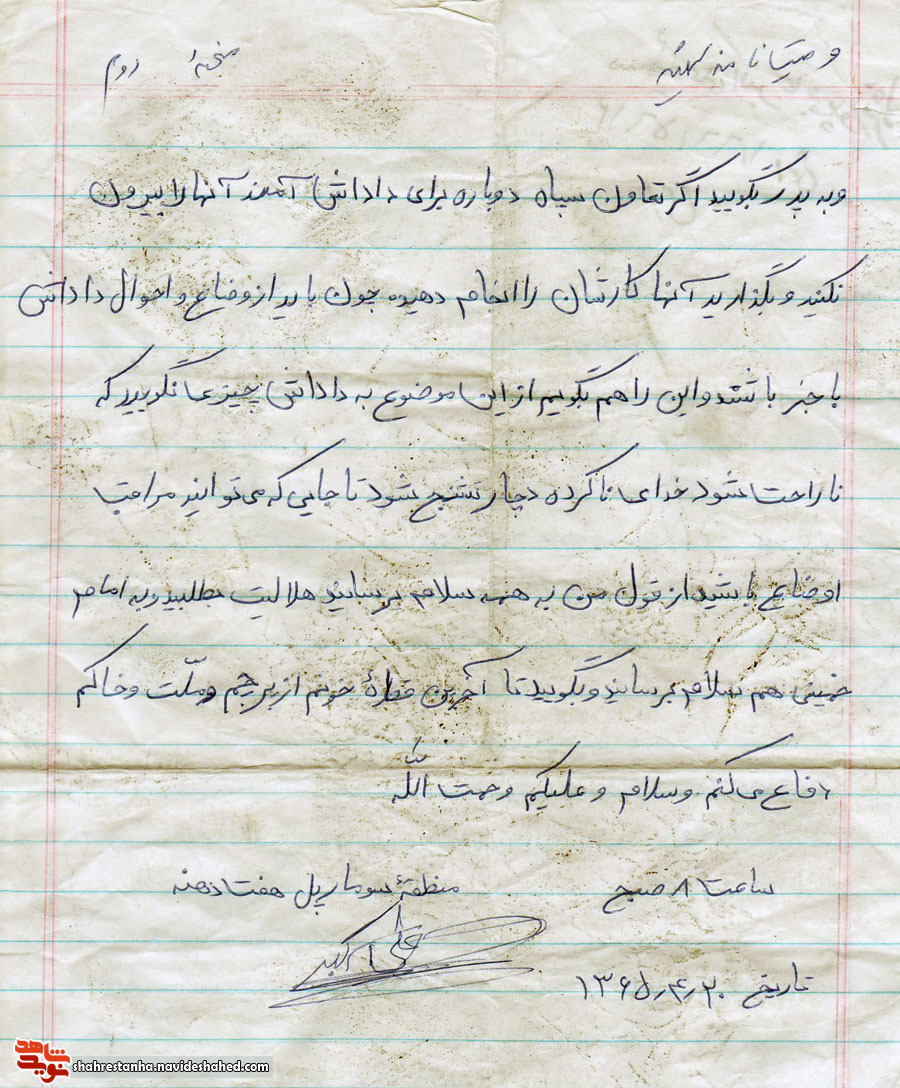 وصیتنامه صفحهٔ دوم
وبه پدر بگویید اگر تعاون سپاه دوباره برای داداش آمدند آنها را بیرون
نکنید و بگذارید آنها کارشان را انجام دهید، چون باید از وضاع و احوال داداش
با خبر باشند و این را هم بگویم از این موضوع به داداش چیزی نگویید که
ناراحت شود خدای ناکرده دچار تشنج شود تا جایی که می توانید مراقب
اوضاع باشید از قول من به همه سلام برسانید هلالیت بطلبید و به امام
خمینی هم سلام برسانید و بگویید تا آخرین قطرهٔ خونم از پرچم و ملّت و خاکم
دفاع می کنم وسلام و علیکم و رحمت اللّه
ساعت ۸ صبح منطقهٔ سومار پل هفت دهنه
علی اکبر
تاریخ ۱۳۶۵٫۴٫۲۰
نوید شاهد shahrestanha.navideshahed.com